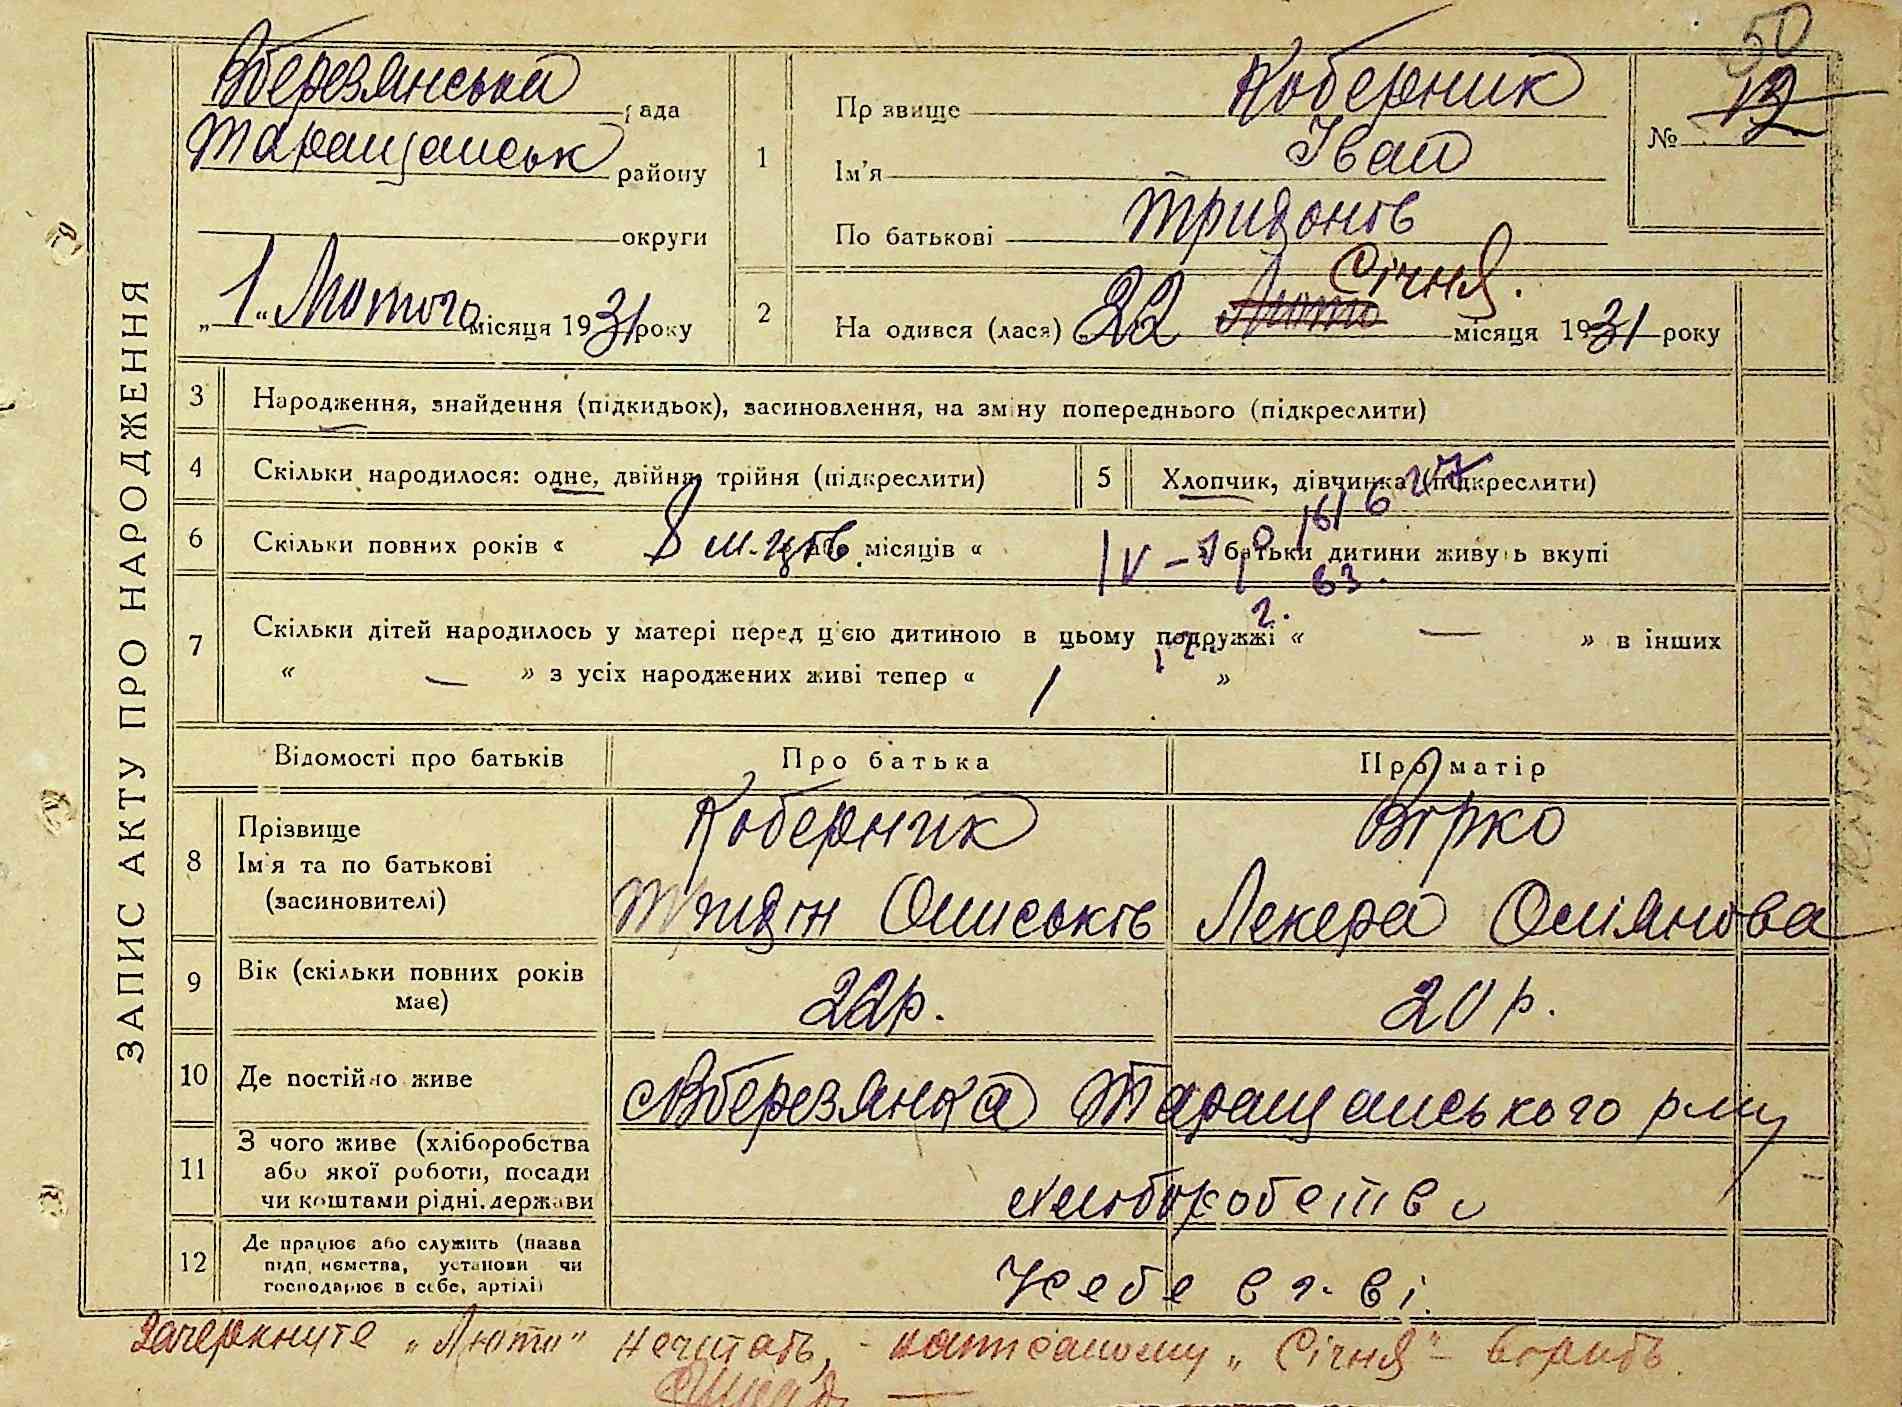 ЗАПИС АКТУ ПРО НАРОДЖЕННЯ
Вберезянська рада
Таращанськ району
округи
„1“ Лютого місяця 1931 року
50
№ 12
1 Прізвище Коберник
Ім'я Іван
По батькові Тридонов
2 Народився (лася) 22 Люто Січня. місяця 1931 року
3 Народження, знайдення (підкидьок), засиновлення, на зміну попереднього (підкреслити)
4 Скільки народилося: одне, двійня, трійня (підкреслити)
5 Хлопчик, дівчинка (підкреслити)
6 Скільки повних років « 8 м-ців. або місяців « батьки дитини живуть вкупі
7 Скільки дітей народилось у матері перед цією дитиною в цьому подружжі « — » в інших
« — » з усіх народжених живі тепер « 1 »
Відомості про батьків Про батька Про матір
8 Прізвище Коберник Вірко
Ім'я та по батькові
(засиновителі) Оліянова
9 Вік (скільки повних років має) 22 р. 20 р.
10 Де постійно живе Вберезянка Таращанського р-ну
11 З чого живе (хліборобства
або якої роботи, посади
чи коштами рідні, держави
12 Де працює або служить (назва
підприємства, установи чи
господарює в себе, артілі)
У себе в
Зачеркнуте „Люто" нечитать, - написаному „Січня" - вірить.